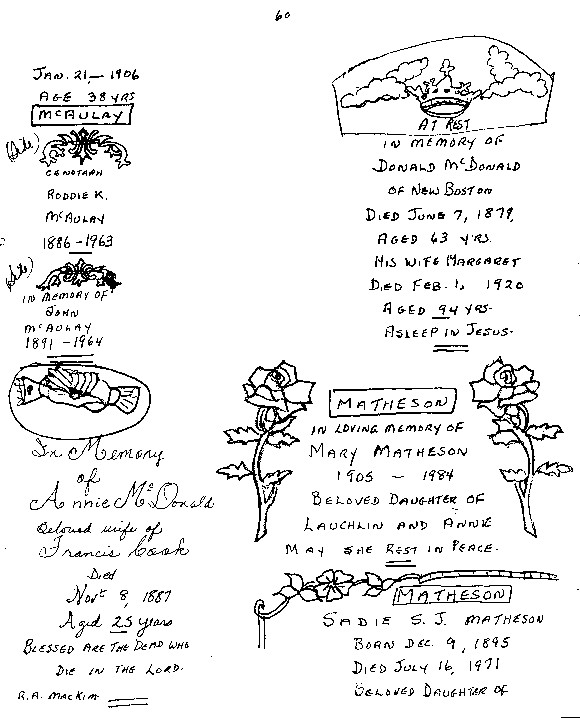 60
JAN. 21, - 1906
AGE 38 YRS
MCAULAY
(Side)
CENOTAPH
RODDIE K.
MCAULAY
1886 - 1963
(Side)
IN MEMORY OF
JOHN
MCAULAY
1891 - 1964
In Memory
of
Annie McDonald
Beloved wife of
Francis Cook
Died
Novt 8, 1887
Aged 25 years
BLESSED ARE THE DEAD WHO
DIE IN THE LORD.
R.A. MACKIM
AT REST
IN MEMORY OF
DONALD MCDONALD
OF NEW BOSTON
DIED JUNE 7, 1879,
AGED 63 YRS.
HIS WIFE MARGARET
DIED FEB. 1, 1920
AGED 94 YRS.
ASLEEP IN JESUS.
MATHESON
IN LOVING MEMORY OF
MARY MATHESON
1905 - 1984
BELOVED DAUGHTER OF
LAUCHLIN AND ANNIE
MAY SHE REST IN PEACE.
MATHESON
SADIE S. J. MATHESON
BORN DEC. 9, 1895
DIED JULY 16, 1971
BELOVED DAUGHTER OF